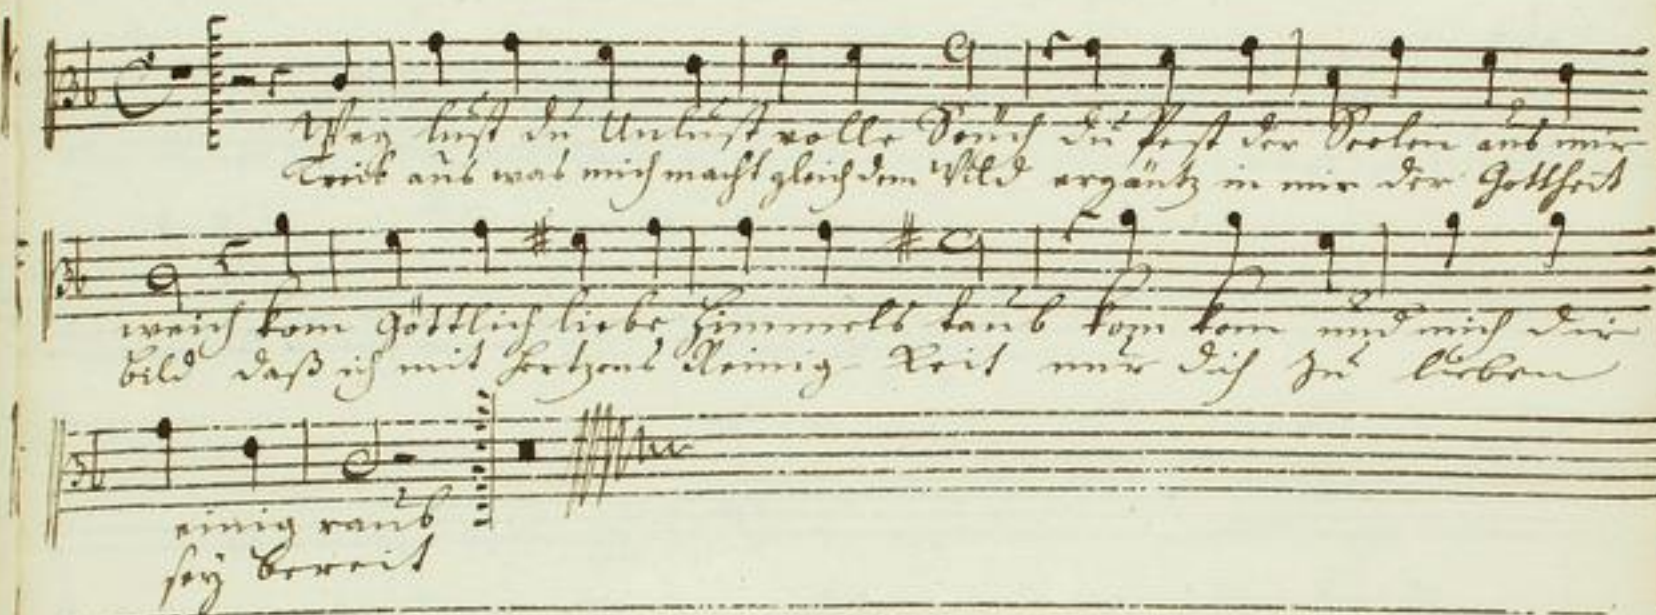 Weg lust du Unlust volle Seüch du Pest der Seelen aus mir
Treib aus was mich macht gleich dem Wild ergäntz in mir der Gottheit
weich kom Göttlich liebe Himmels taub kom kom und mich dir
bild daß ich mit Hertzens Reinig Keit nur dich zu lieben
einig raub
sey bereit